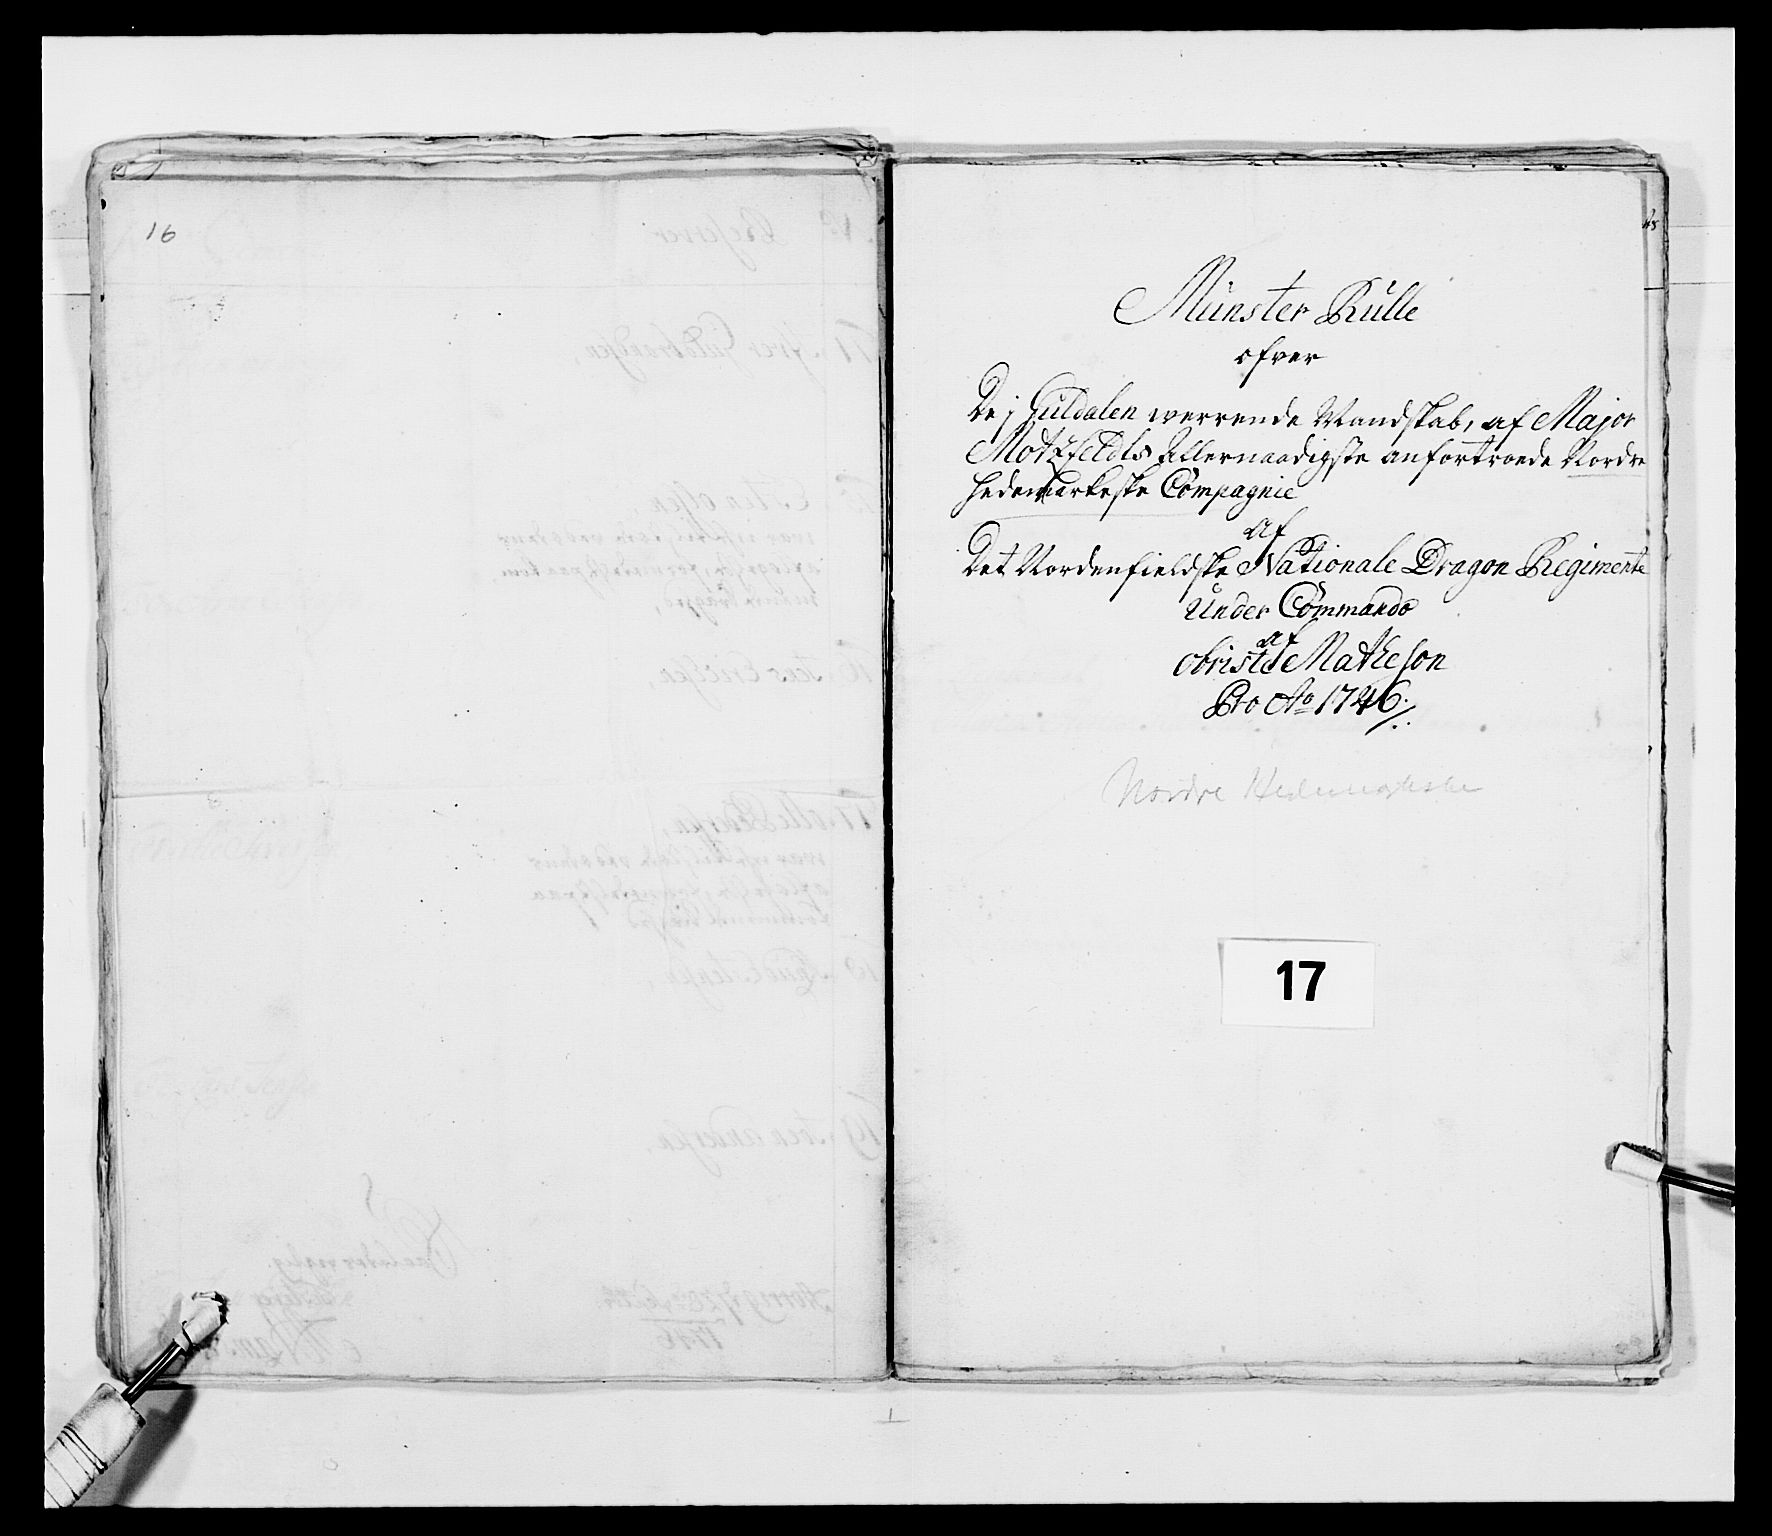 16
Münster Rülle
ofver
De j Guldalen werrende Mandskab, af Major
Motzfeldts Allernaadigste anfortroede Nordre
Hedemarkeske Compagnie
Af
Det Nordenfieldske Nationale Dragon Regimente
Under Commando
af
Obriste Matheson
Pro Ao 1746
Nordre Hedemarkske
17